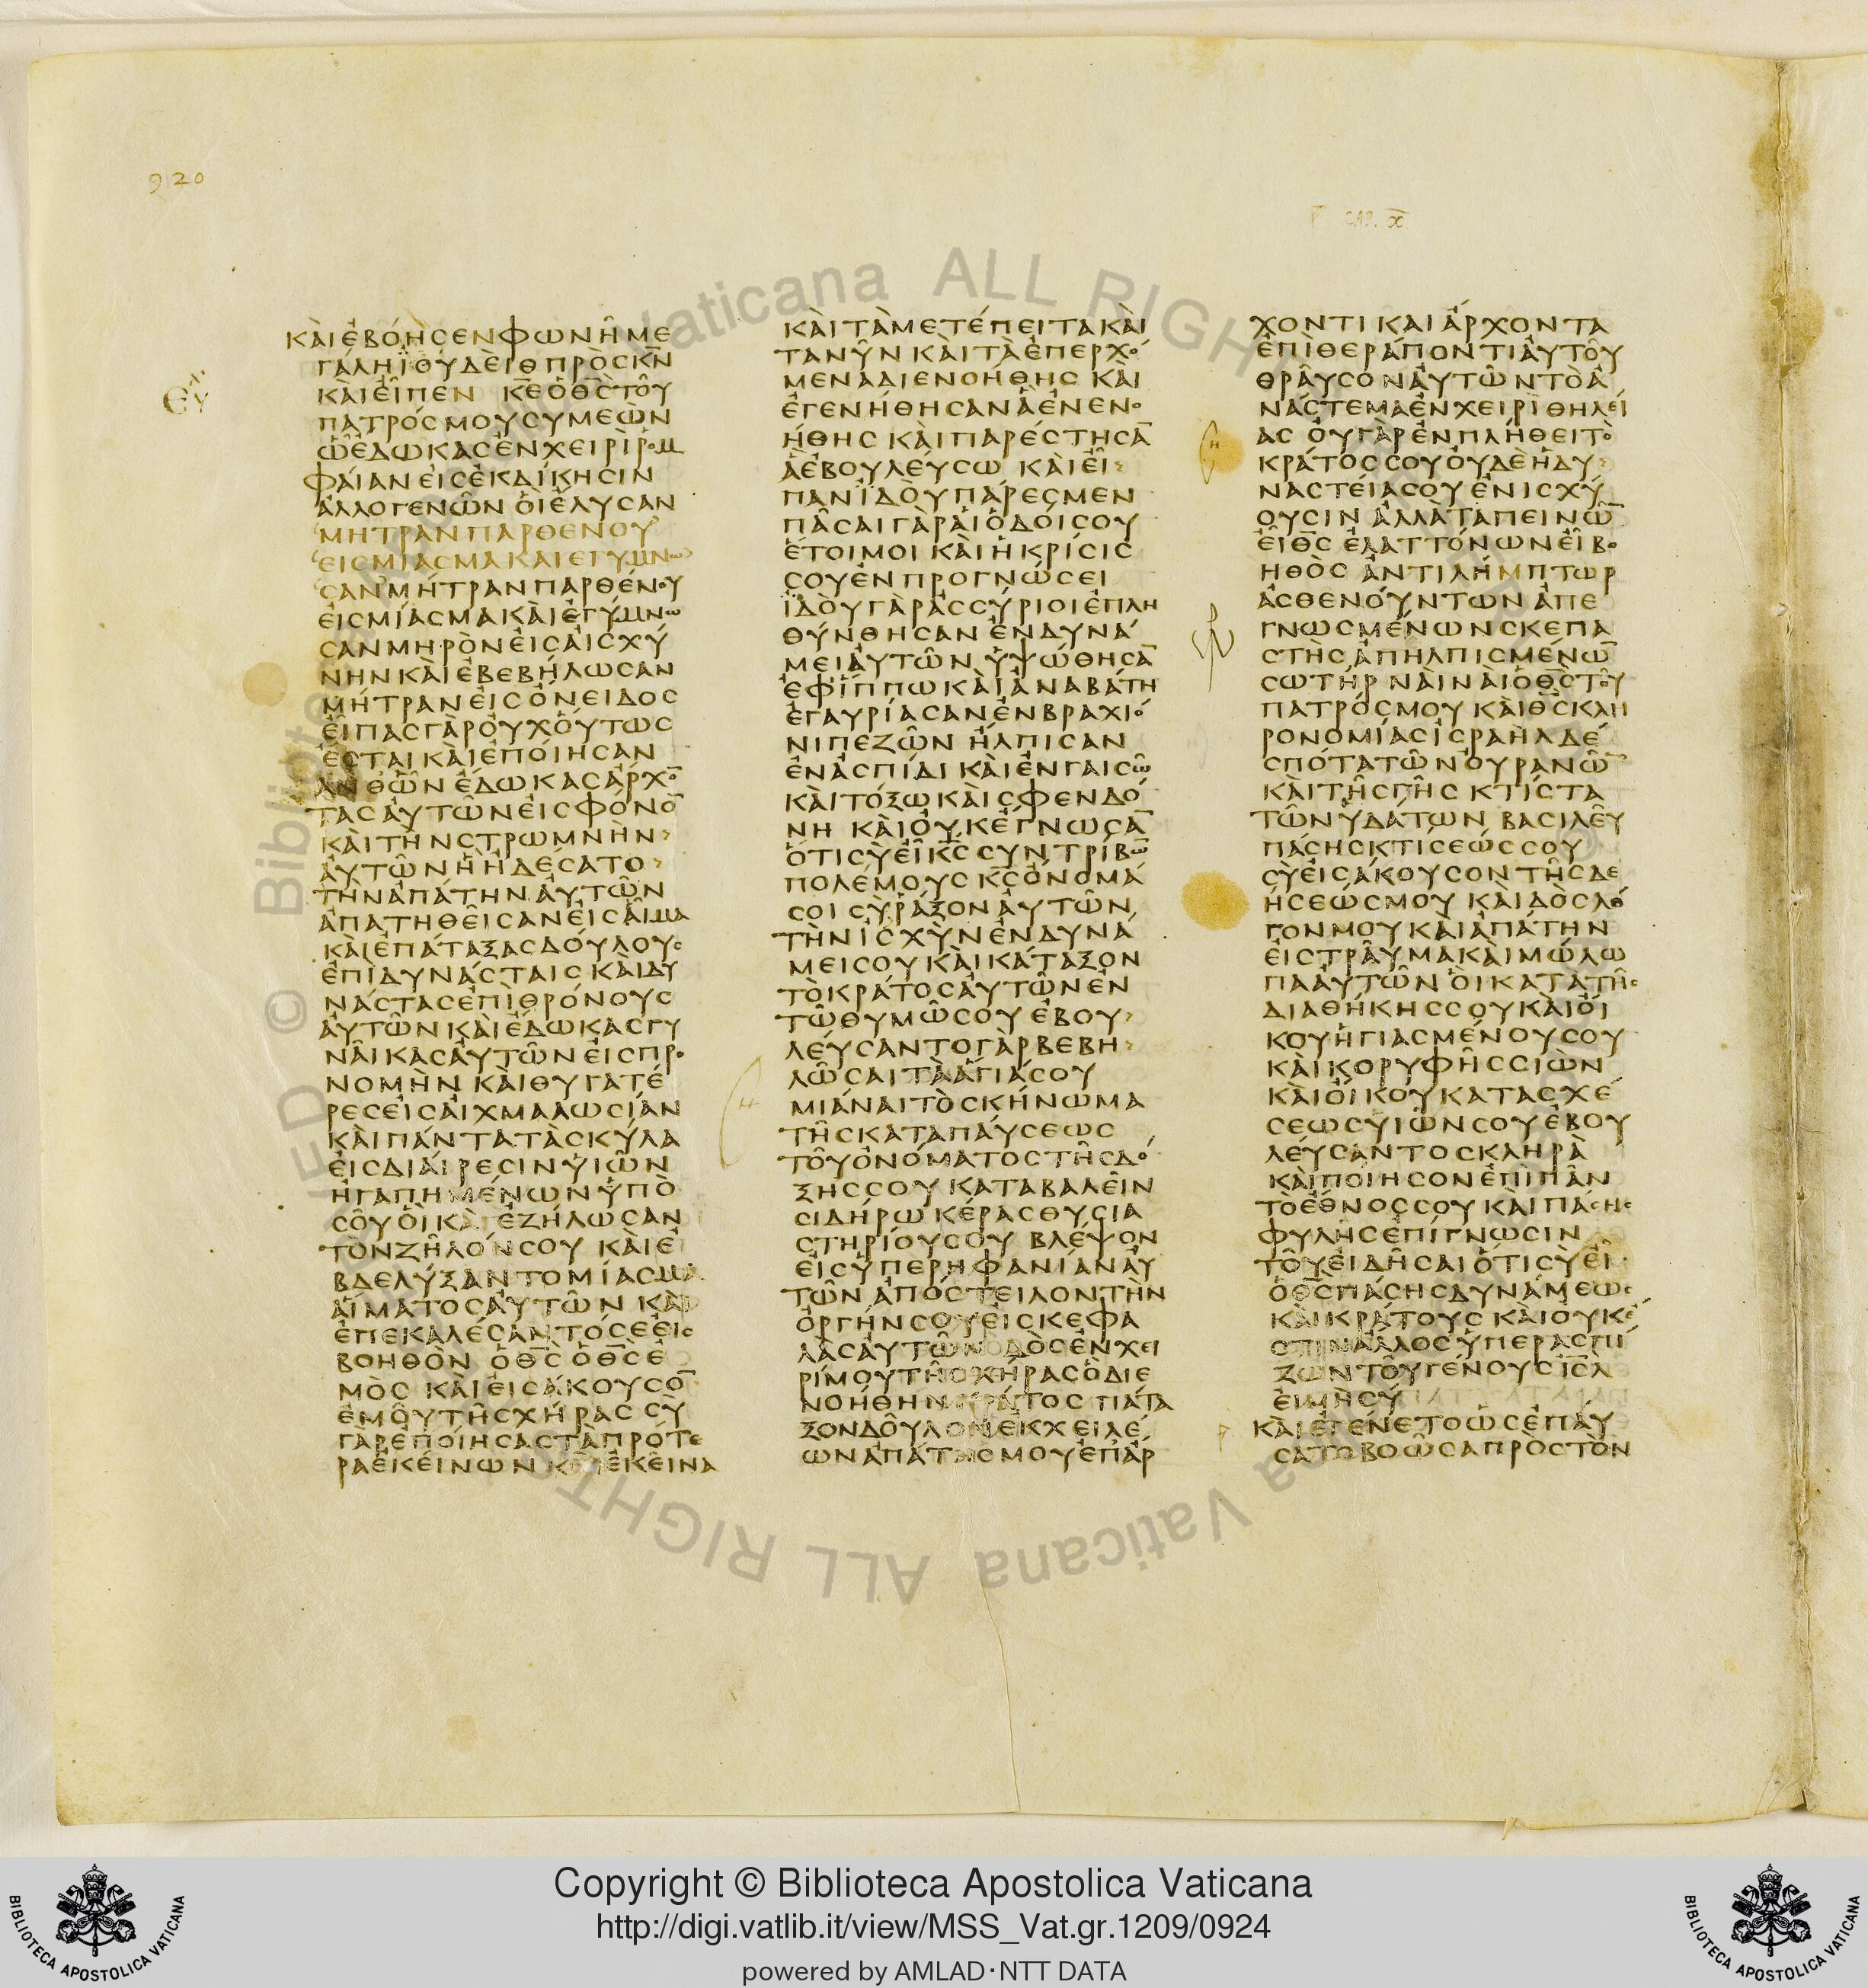 920
CAP. X
ΕΥΧ
ΚΑΙΕΒΟΗϹΕΝΦΩΝΗΜΕ
ΓΑΛΗΪΟΥΔΕΙΘΠΡΟϹΚΝ
ΚΑΙΕΙΠΕΝ ΚΕΟΘϹΤΟΥ
ΠΑΤΡΟϹΜΟΥϹΥΜΕΩΝ
ΩΕΔΩΚΑϹΕΝΧΕΙΡΙΡΟΜ
ΦΑΙΑΝΕΙϹΕΚΔΙΚΗϹΙΝ
ΑΛΛΟΓΕΝΩΝΟΙΕΛΥϹΑΝ
ΜΗΤΡΑΝΠΑΡΘΕΝΟΥ
ΕΙϹΜΙΑϹΜΑΚΑΙΕΓΥΜΝΩ
ϹΑΝΜΗΤΡΑΝΠΑΡΘΕΝΟΥ
ΕΙϹΜΙΑϹΜΑΚΑΙΕΓΥΜΝΩ
ϹΑΝΜΗΡΟΝΕΙϹΑΙϹΧΥ
ΝΗΝΚΑΙΕΒΕΒΗΛΩϹΑΝ
ΜΗΤΡΑΝΕΙϹΟΝΕΙΔΟϹ
ΕΙΠΑϹΓΑΡΟΥΧΟΥΤΩϹ
ΕϹΤΑΙΚΑΙΕΠΟΙΗϹΑΝ
ΑΝΘΩΝΕΔΩΚΑϹΑΡΧΟ̅
ΤΑϹΑΥΤΩΝΕΙϹΦΟΝΟ̅
ΚΑΙΤΗΝϹΤΡΩΜΝΗΝ
ΑΥΤΩΝΗΗΔΕϹΑΤΟ
ΤΗΝΑΠΑΤΗΝΑΥΤΩΝ
ΑΠΑΤΗΘΕΙϹΑΝΕΙϹΑΙΜΑ
ΚΑΙΕΠΑΤΑΞΑϹΔΟΥΛΟΥϹ
ΕΠΙΔΥΝΑϹΤΑΙϹΚΑΙΔΥ
ΝΑϹΤΑϹΕΠΙΘΡΟΝΟΥϹ
ΑΥΤΩΝΚΑΙΕΔΩΚΑϹΓΥ
ΝΑΙΚΑϹΑΥΤΩΝΕΙϹΠΡΟ
ΝΟΜΗΝ ΚΑΙΘΥΓΑΤΕ
ΡΕϹΕΙϹΑΙΧΜΑΛΩϹΙΑΝ
ΚΑΙΠΑΝΤΑΤΑϹΚΥΛΑ
ΕΙϹΔΙΑΙΡΕϹΙΝΥΙΩΝ
ΗΓΑΠΗΜΕΝΩΝΥΠΟ
ϹΟΥΟΙΚΑΙΕΖΗΛΩϹΑΝ
ΤΟΝΖΗΛΟΝϹΟΥ ΚΑΙΕ
ΒΔΕΛΥΞΑΝΤΟΜΙΑϹΜΑ
ΑΙΜΑΤΟϹΑΥΤΩΝ ΚΑΙ
ΕΠΕΚΑΛΕϹΑΝΤΟϹΕΕΙϹ
ΒΟΗΘΟΝ ΟΘϹΟΘϹΕ
ΜΟϹ ΚΑΙΕΙϹΑΚΟΥϹΟ̅
ΕΜΟΥΤΗϹΧΗΡΑϹϹΥ
ΓΑΡΕΠΟΙΗϹΑϹΤΑΠΡΟΤΕ
ΡΑΕΚΕΙΝΩΝ ΚΑΙΕΚΕΙΝΑ
ΚΑΙΤΑΜΕΤΕΠΕΙΤΑΚΑΙ
ΤΑΝΥΝΚΑΙΤΑΕΠΕΡΧΟ
ΜΕΝΑΔΙΕΝΟΗΘΗϹ ΚΑΙ
ΕΓΕΝΗΘΗϹΑΝΑΕΝΕΝΟ
ΗΘΗϹ ΚΑΙΠΑΡΕϹΤΗϹΑ̅
ΑΕΒΟΥΛΕΥϹΩ ΚΑΙΕΙ
ΠΑΝΪΔΟΥΠΑΡΕϹΜΕΝ
ΠΑϹΑΙΓΑΡΑΙΟΔΟΙϹΟΥ
ΕΤΟΙΜΟΙΚΑΙΗΚΡΙϹΙϹ
ϹΟΥΕΝΠΡΟΓΝΩϹΕΙ
ΪΔΟΥΓΑΡΑϹϹΥΡΙΟΙΕΠΛΗ
ΘΥΝΘΗϹΑΝΕΝΔΥΝΑ
ΜΕΙΑΥΤΩΝ ΥΨΩΘΗϹΑ̅
ΕΦΙΠΠΩΚΑΙΑΝΑΒΑΤΗ
ΕΓΑΥΡΙΑϹΑΝΕΝΒΡΑΧΙΟ
ΝΙΠΕΖΩΝ ΗΛΠΙϹΑΝ
ΕΝΑϹΠΙΔΙΚΑΙΕΝΓΑΙϹΩ
ΚΑΙΤΟΞΩΚΑΙϹΦΕΝΔΟ
ΝΗ ΚΑΙΟΥΚΕΓΝΩϹΑ̅
ΟΤΙϹΥΕΙΚϹϹΥΝΤΡΙΒΩ̅
ΠΟΛΕΜΟΥϹΚϹΟΝΟΜΑ
ϹΟΙϹΥΡΑΞΟΝΑΥΤΩΝ
ΤΗΝΙϹΧΥΝΕΝΔΥΝΑ
ΜΕΙϹΟΥΚΑΙΚΑΤΑΞΟΝ
ΤΟΚΡΑΤΟϹΑΥΤΩΝΕΝ
ΤΩΘΥΜΩϹΟΥΕΒΟΥ
ΛΕΥϹΑΝΤΟΓΑΡΒΕΒΗ
ΛΩϹΑΙΤΑΑΓΙΑϹΟΥ
ΜΙΑΝΑΙΤΟϹΚΗΝΩΜΑ
ΤΗϹΚΑΤΑΠΑΥϹΕΩϹ
ΤΟΥΟΝΟΜΑΤΟϹΤΗϹΔΟ
ΞΗϹϹΟΥΚΑΤΑΒΑΛΕΙΝ
ϹΙΔΗΡΩΚΕΡΑϹΘΥϹΙΑ
ϹΤΗΡΙΟΥϹΟΥ ΒΛΕΨΟΝ
ΕΙϹΥΠΕΡΗΦΑΝΙΑΝΑΥ
ΤΩΝΑΠΟϹΤΕΙΛΟΝΤΗΝ
ΟΡΓΗΝϹΟΥΕΙϹΚΕΦΑ
ΛΑϹΑΥΤΩΝΔΟϹΕΝΧΕΙ
ΡΙΜΟΥΤΗϹΧΗΡΑϹΟΔΙΕ
ΝΟΗΘΗΝΚΡΑΤΟϹΠΑΤΑ
ΞΟΝΔΟΥΛΟΝΕΚΧΕΙΛΕ
ΩΝΑΠΑΤΗϹΜΟΥΕΠΑΡ
ΧΟΝΤΙΚΑΙΑΡΧΟΝΤΑ
ΕΠΙΘΕΡΑΠΟΝΤΙΑΥΤΟΥ
ΘΡΑΥϹΟΝΑΥΤΩΝΤΟΑ
ΝΑϹΤΕΜΑΕΝΧΕΙΡΙΘΗΛΕΙ
ΑϹ ΟΥΓΑΡΕΝΠΛΗΘΕΙΤΟ
ΚΡΑΤΟϹϹΟΥΟΥΔΕΗΔΥ
ΝΑϹΤΕΙΑϹΟΥΕΝΙϹΧΥ
ΟΥϹΙΝΑΛΛΑΤΑΠΕΙΝΩ̅
ΕΙΘϹ ΕΛΑΤΤΟΝΩΝΕΙΒΟ
ΗΘΟϹ ΑΝΤΙΛΗΜΠΤΩΡ
ΑϹΘΕΝΟΥΝΤΩΝΑΠΕ
ΓΝΩϹΜΕΝΩΝϹΚΕΠΑ
ϹΤΗϹΑΠΗΛΠΙϹΜΕΝΩ̅
ϹΩΤΗΡ ΝΑΙΝΑΙΟΘϹΤΟΥ
ΠΑΤΡΟϹΜΟΥ ΚΑΙΘϹΚΛΗ
ΡΟΝΟΜΙΑϹΙϹΡΑΗΛΔΕ
ϹΠΟΤΑΤΩΝΟΥΡΑΝΩ̅
ΚΑΙΤΗϹΓΗϹ ΚΤΙϹΤΑ
ΤΩΝΥΔΑΤΩΝ ΒΑϹΙΛΕΥ
ΠΑϹΗϹΚΤΙϹΕΩϹϹΟΥ
ϹΥΕΙϹΑΚΟΥϹΟΝΤΗϹΔΕ
ΗϹΕΩϹΜΟΥ ΚΑΙΔΟϹΛΟ
ΓΟΝΜΟΥΚΑΙΑΠΑΤΗΝ
ΕΙϹΤΡΑΥΜΑΚΑΙΜΩΛΩ
ΠΑΑΥΤΩΝΟΙΚΑΤΑΤΗϹ
ΔΙΑΘΗΚΗϹϹΟΥΚΑΙΟΙ
ΚΟΥΗΓΙΑϹΜΕΝΟΥϹΟΥ
ΚΑΙΚΟΡΥΦΗϹϹΙΩΝ
ΚΑΙΟΙΚΟΥΚΑΤΑϹΧΕ
ϹΕΩϹΥΙΩΝϹΟΥΕΒΟΥ
ΛΕΥϹΑΝΤΟϹΚΛΗΡΑ
ΚΑΙΠΟΙΗϹΟΝΕΠΙΠΑΝ
ΤΟΕΘΝΟϹϹΟΥΚΑΙΠΑϹΗϹ
ΦΥΛΗϹΕΠΙΓΝΩϹΙΝ
ΤΟΥΕΙΔΗϹΑΙΟΤΙϹΥΕΙ
ΟΘϹΠΑϹΗϹΔΥΝΑΜΕΩϹ
ΚΑΙΚΡΑΤΟΥϹΚΑΙΟΥΚΕ
ϹΤΙΝΑΛΛΟϹΥΠΕΡΑϹΠΙ
ΖΩΝΤΟΥΓΕΝΟΥϹΙϹΛ
ΕΙΜΗϹΥ
ΚΑΙΕΓΕΝΕΤΟΩϹΕΠΑΥ
ϹΑΤΟΒΟΩϹΑΠΡΟϹΤΟΝ
Copyright © Biblioteca Apostolica Vaticana
http://digi.vatlib.it/view/MSS_Vat.gr.1209/0924
powered by AMLAD·NTT DATA
BIBLIOTECA APOSTOLICA VATICANA
BIBLIOTECA APOSTOLICA VATICANA